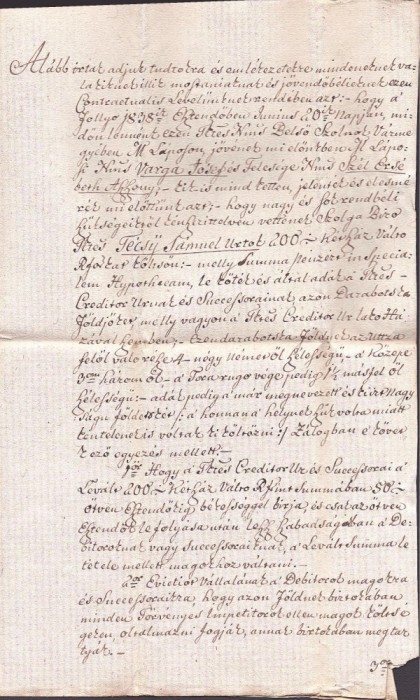 Alább irtak adjuk tudtokra és emlékezetekre mindeneknek va-
lakiknek illik mostaniaknak és jövendőbélieknek ezen
Contractualis Levelünknek rendiben azt:- hogy á
follyo 1838ik Esztendőben Junius 20ik Napján, mi-
dőn lennénk ezen Ttes Kns Belső Szolnok Várme-
gyében M Láposon, jövének mi előnkbe M Lápo-
si Kns Varga Jósef és Felesége Kns Szél Ersé-
beth Asszony,
rék mi előttünk azt:- hogy nagy és fő rendbeli
szükségeiktől kénszerittetvén vettenek Szolga Biro
Ttes Técsy Sámuel Urtol 200 Kétszáz Váltó
Rforintokat költsön:- melly Summa Penzért in Specia-
lem Hypothecam, le köték és által adák á Ttes-
Creditor Urnak és Successorainak azon Darabotska
Földjöket, melly vagyon á Ttes Creditor Ur lakó Há-
zával szemben, ezen darabotska Földnek az Uttza
felől való része 4- négy
3om három öl á Tora rugo vége pedig 1½ másfél öl
szélességü:- adák pedig á már megnevezett és
földeket
kéntelenek is voltak ki költözni:/ Zálogban é követ-
kező egyezés mellett:-
1ör Hogy á Ttes Creditor Ur és Successorai á
Levált 200 Kétszáz Váltó Rfrint Summában 50
ötven Esztendőkig békességgel birja, és csak az ötven
Esztendők le folyása után lessz szabadságában á De-
bitoroknak vagy Successoraiknak, á Levált Summa le
tétele mellett magokhoz váltani.-
2or Evictiot Vállalának á Debitorok magokra
és Successoraikra, hogy azon Földnek birtokában
minden Törvényes Impetitorok ellen magok költsé-
geken, oltalmazni fogják, annak birtokában megtar-
tyák.-
3or